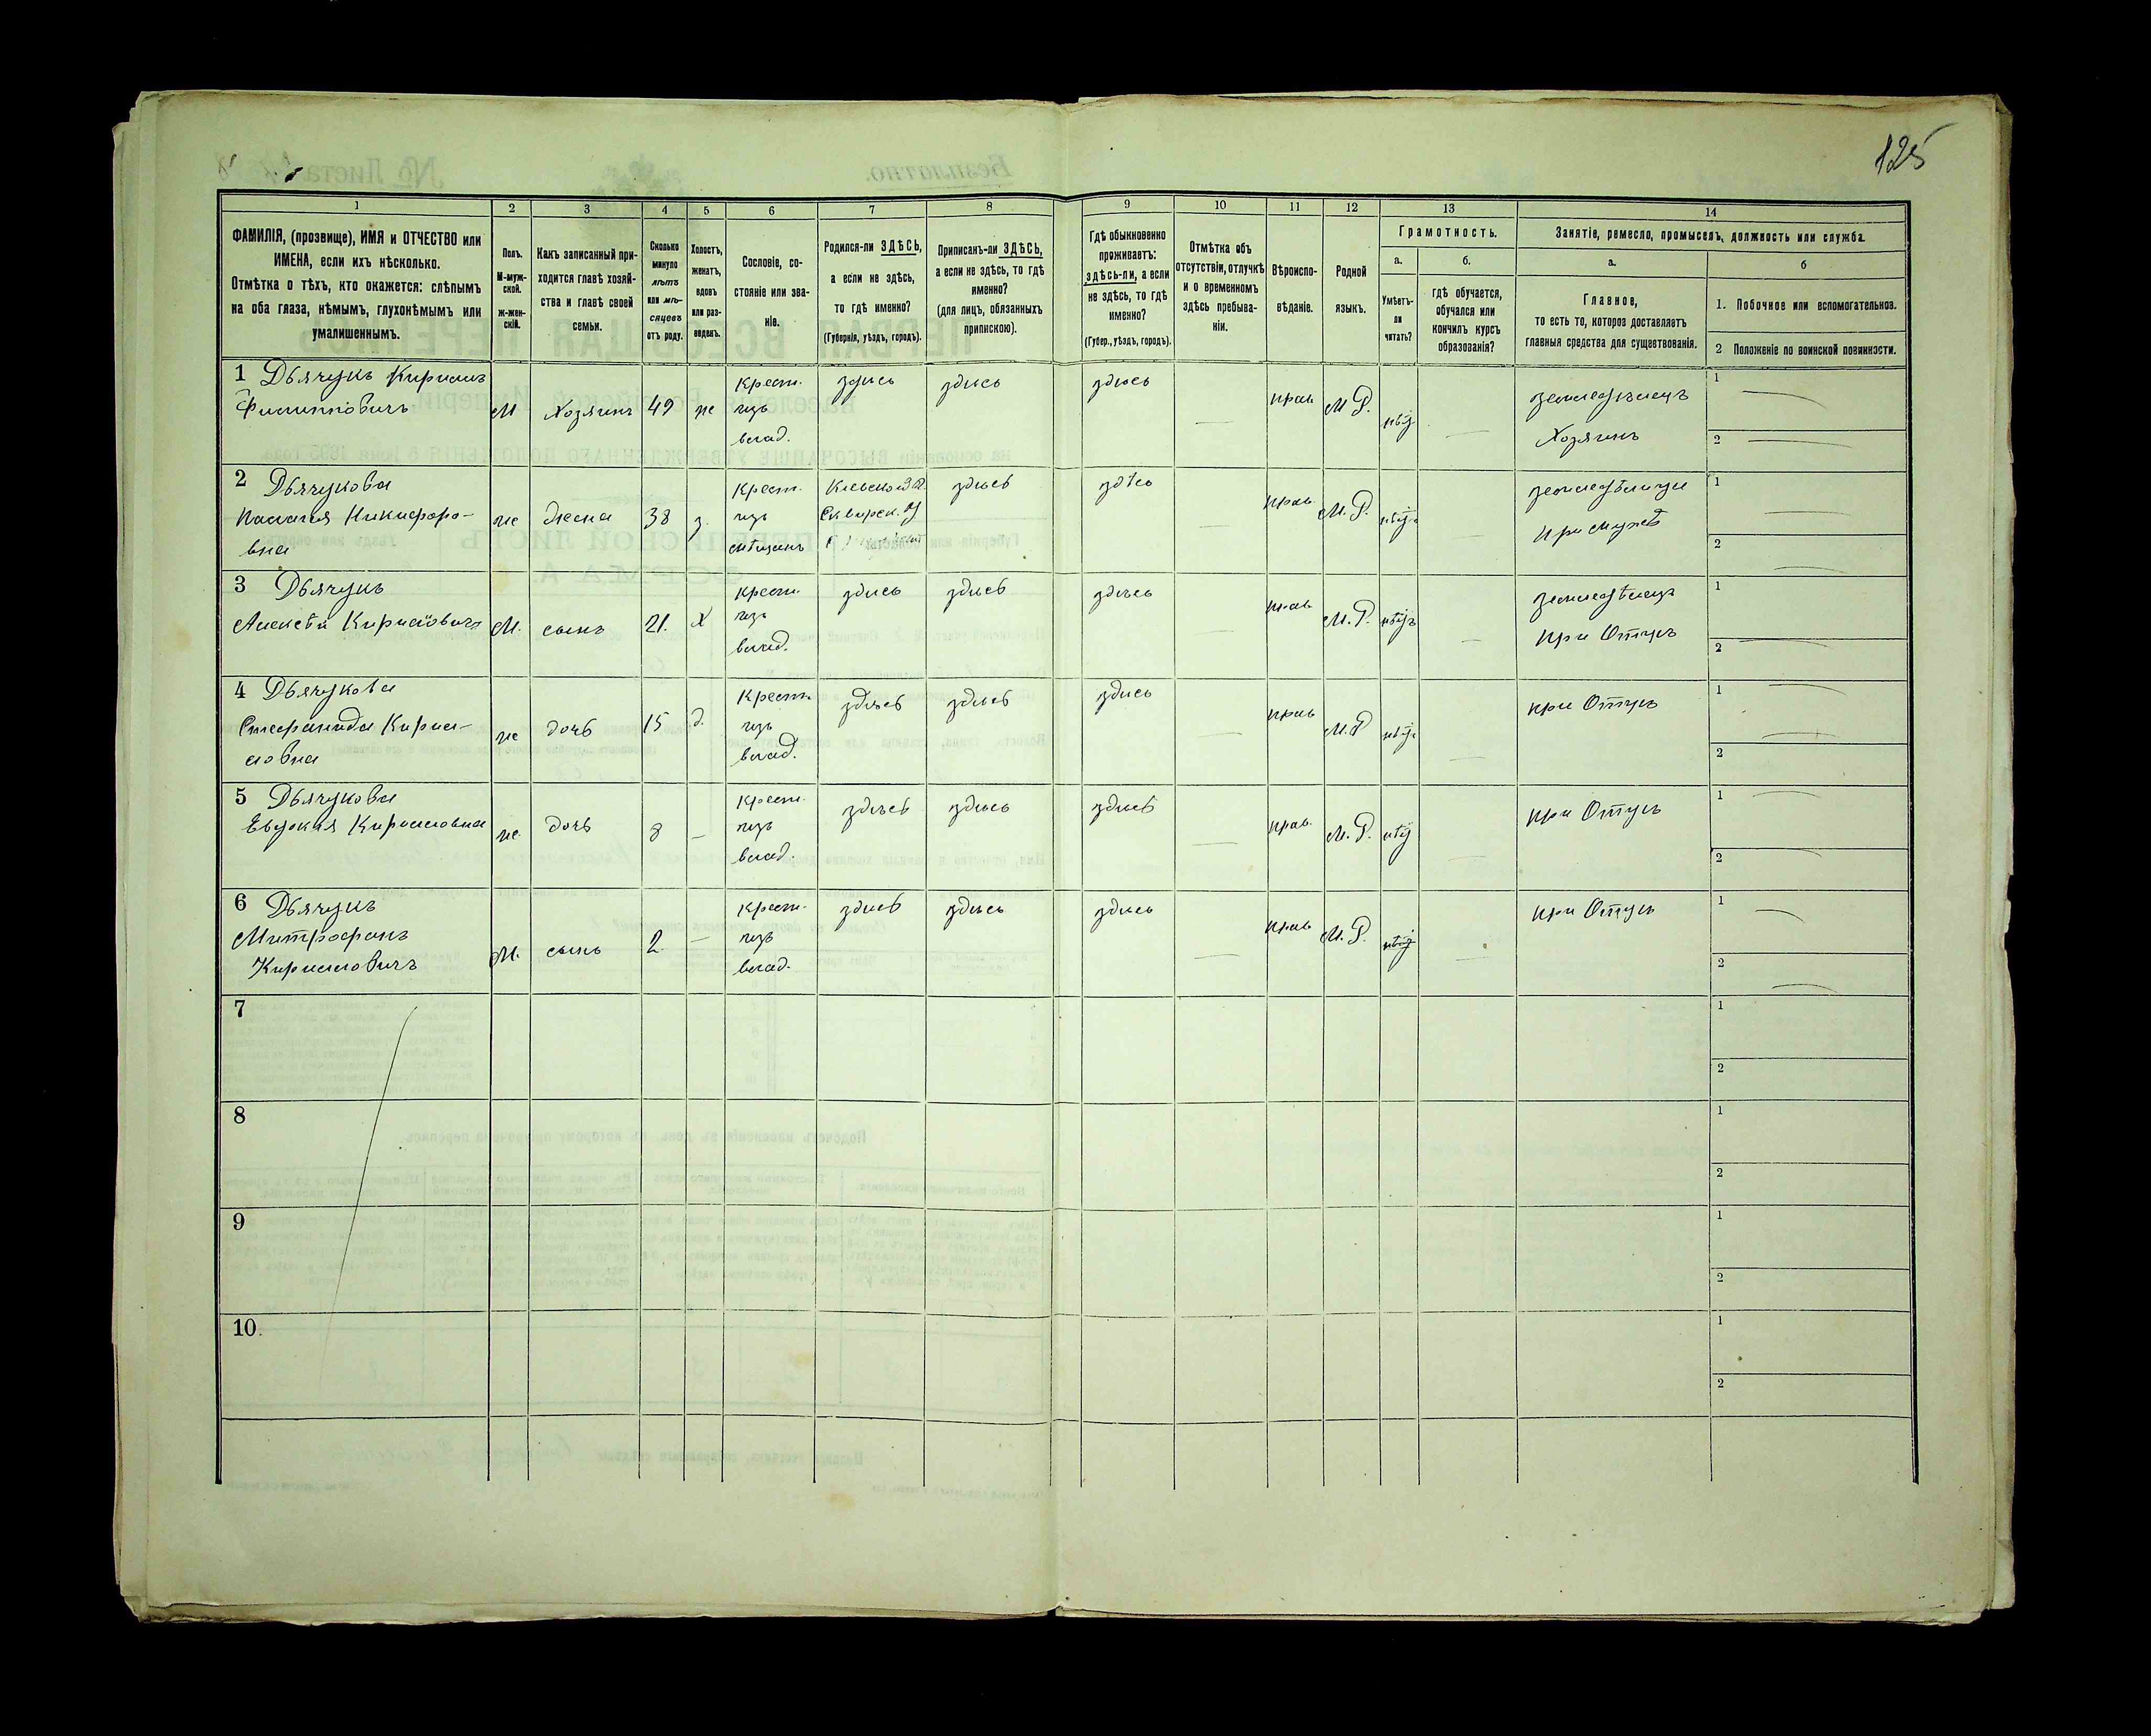 125
1 2 3 4 5 6 7 8 9 10 11 12 13 14
ФАМИЛІЯ, (прозвище), ИМЯ и ОТЧЕСТВО или
ИМЕНА, если ихъ нѣсколько.
Отмѣтка о тѣхъ, кто окажется: слѣпымъ
на оба глаза, нѣмымъ, глухонѣмымъ или
умалишеннымъ.
Полъ.
М-муж-
ской.
ж-жен-
скій.
Какъ записанный при-
ходится главѣ хозяй-
ства и главѣ своей
семьи.
Сколько
минуло
лѣтъ
или мѣ-
сяцевъ
отъ роду.
Холостъ,
женатъ,
вдовъ
или раз-
веденъ.
Сословіе, со-
стояніе или зва-
ніе.
Родился-ли ЗДѢСЬ,
а если не здѣсь,
то гдѣ именно?
(Губернія, уѣздъ, городъ).
Приписанъ-ли ЗДѢСЬ,
а если не здѣсь, то гдѣ
именно?
(для лицъ, обязанныхъ
припискою).
Гдѣ обыкновенно
проживаетъ:
здѣсь-ли, а если
не здѣсь, то гдѣ
именно?
(Губер., уѣздъ, городъ).
Отмѣтка объ
отсутствіи, отлучкѣ
и о временномъ
здѣсь пребыва-
ніи.
Вѣроиспо-
вѣданіе.
Родной
языкъ.
Грамотность.
а.
Умѣетъ-
ли
читать?
б.
гдѣ обучается,
обучался или
кончилъ курсъ
образованія?
Занятіе, ремесло, промыселъ, должность или служба.
а.
Главное,
то есть то, которое доставляетъ
главныя средства для существованія.
б
1. Побочное или вспомогательное.
2 Положеніе по воинской повинности.
1 Дьячукъ Кирилъ
Филиповичъ
М Хозяинъ 49 же
Крест.
изъ
влад.
здись здись здись прав М.Р. нѣтъ
земледѣлецъ
Хозяинъ
1
2
2 Дьячукова
Палагія Никифоро-
вна
же жена 38 з.
Крест.
изъ
мѣщанъ
Кіевской г.
Сквирск. у
здись здѣсь прав М.Р. нѣтъ
земледѣлица
при мужѣ
1
2
3 Дьячукъ
Алексѣй Кириловичъ
М. сынъ 21. х
крест.
изъ
влад.
здись здись здись прав М.Р. нѣтъ
земледѣлецъ
при Отцъ
1
2
4 Дьячукова
Стефанида Кири-
ловна
же дочь 15 д.
Крест.
изъ
влад.
здись здись здись прав М.Р нѣтъ
при Отцъ
1
2
5 Дьячукова
Евдокія Кириловна
же. дочь 8 —
Крест.
изъ
влад.
здись здись здись прав. М.Р. нѣтъ
при Отцъ
1
2
6 Дьячукъ
Митрофанъ
Кириловичъ
М. сынъ 2 —
Крест.
изъ
влад.
здись здись здись прав М.Р. нѣтъ
при Отцъ
1
2
7
1
2
8
1
2
9
1
2
10.
1
2